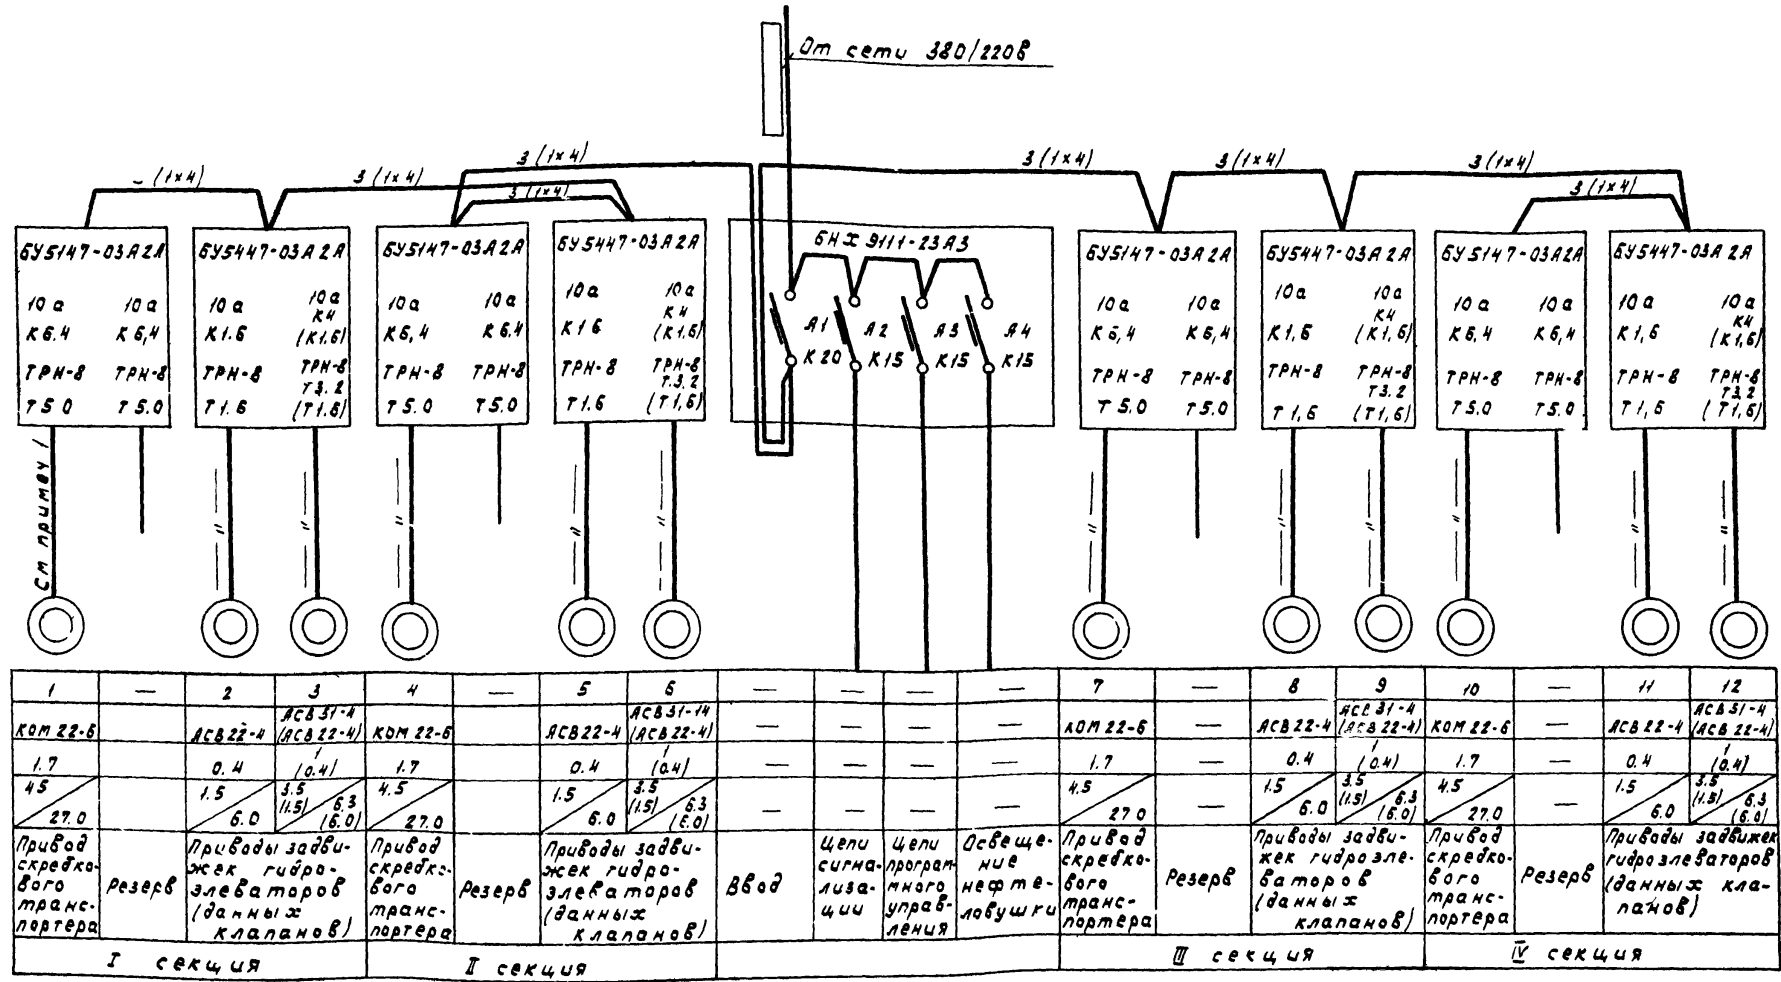 От сети 380/220в
– (1×4)
3 (1×4)
3 (1×4)
3 (1×4)
3 (1×4)
3 (1×4)
3 (1×4)
3 (1×4)
БУ5147-03А2А
10а 10а
К6.4 К6,4
ТРН-8 ТРН-8
Т5.0 Т5.0
БУ5447-03А2А
10а 10а
К4
К1.6 (К1,6)
ТРН-8 ТРН-8
Т3.2
Т1.6 (Т1.6)
БУ5147-03А2А
10а 10а
К6,4 К6.4
ТРН-8 ТРН-8
Т5.0 Т5.0
БУ5447-03А2А
10а 10а
К4
К1.6 (К1,6)
ТРН-8 ТРН-8
Т.3.2
Т1.6 (Т1,6)
БНХ 9111-23А3
А1 А2 А3 А4
К20 К15 К15 К15
БУ5147-03А2А
10а 10а
К6,4 К6,4
ТРН-8 ТРН-8
Т5.0 Т5.0
БУ5447-03А2А
10а 10а
К4
К1,6 (К1,6)
ТРН-8 ТРН-8
Т3.2
Т1,6 (Т1,6)
БУ5147-03А2А
10а 10а
К6,4 К6,4
ТРН-8 ТРН-8
Т5.0 Т5.0
БУ5447-03А2А
10а 10а
К4
К1,6 (К1,6)
ТРН-8 ТРН-8
Т3.2
Т1,6 (Т1,6)
См примеч 1
— " — — " — — " — — " — — " — — " — — " — — " — — " — — " — — " —
1 — 2 3 4 — 5 6 — — — — 7 — 8 9 10 — 11 12
АСВ31-4 АСВ31-14 АСВ31-4 АСВ31-4
КОМ22-6 АСВ22-4 (АСВ22-4) КОМ22-6 АСВ22-4 (АСВ22-4) — — — — КОМ22-6 — АСВ22-4 (АСВ22-4) КОМ22-6 — АСВ22-4 (АСВ22-4)
1 1 1 1
1.7 0.4 (0.4) 1.7 0.4 (0.4) — — — — 1.7 — 0.4 (0.4) 1.7 — 0.4 (0.4)
4.5 1.5 3.5 (1.5) 4.5 1.5 3.5 (1.5) — — — — 4.5 — 1.5 3.5 (1.5) 4.5 — 1.5 3.5 (1.5)
27.0 6.0 6.3 (6.0) 27.0 6.0 6.3 (6.0) 27.0 6.0 6.3 (6.0) 27.0 6.0 6.3 (6.0)
Привод
скребко-
вого
транс-
портера
Резерв
Приводы задви-
жек гидро-
элеваторов
(данных
клапанов)
Привод
скребко-
вого
транс-
портера
Резерв
Приводы задви-
жек гидро-
элеваторов
(данных
клапанов)
Ввод
Цепи
сигна-
лиза-
ции
Цепи
програм-
много
управ-
ления
Освеще-
ние
нефте-
ловушки
Привод
скребко-
вого
транс-
портера
Резерв
Приводы задви-
жек гидроэле-
ваторов
(данных
клапанов)
Привод
скребко-
вого
транс-
портера
Резерв
Приводы задвижек
гидроэлеваторов
(данных кла-
панов)
I секция
II секция
III секция
IV секция